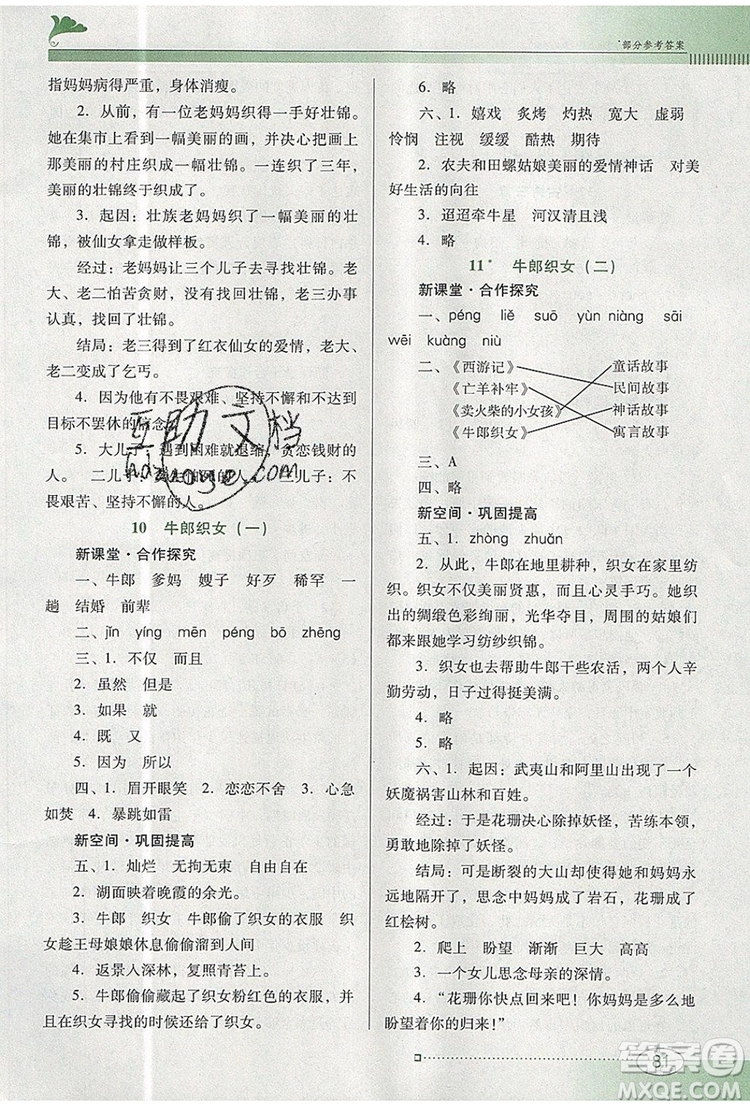 部分参考答案
指妈妈病得严重，身体消瘦。
2. 从前，有一位老妈妈织得一手好壮锦。
她在集市上看到一幅美丽的画，并决心要把
那美丽的村庄织下来。一连织了三年，
美丽的壮锦终于织成了。
3. 起因：壮族老妈妈织了一幅美丽的壮
锦，被仙女拿走做样板。
经过：老妈妈让三个儿子去寻壮锦。老
大、老二怕苦贪财，只有老三历尽千辛办事
认真，找回了壮锦。
结局：老三得到了红衣仙女的爱情，老大、
老二变成了乞丐。
4. 因为他有不畏艰难、坚持不懈和不达到
目标不罢休的信念。
5. 大儿子：遇到困难就退缩、贪恋钱财的
人。
畏艰苦、坚持不懈的人。
10 牛郎织女（一）
新课堂·合作探究
一、牛郎 爹妈 嫂子 好歹 稀罕 一
趟 结婚 前辈
二、jǐn yíng mēn péng bō zhēng
三、1. 不仅 而且
2. 虽然 但是
3. 如果 就
4. 既 又
5. 因为 所以
四、1. 眉开眼笑 2. 恋恋不舍 3. 心急
如焚 4. 暴跳如雷
新空间·巩固提高
五、1. 灿烂 无拘无束 自由自在
2. 湖面映着晚霞的余光。
3. 牛郎 织女 牛郎偷了织女的衣服 织
女趁王母娘娘休息偷偷溜到人间
4. 返景入深林，复照青苔上。
5. 牛郎偷偷藏起了织女粉红色的衣服，并
且在织女寻找的时候还给了织女。
6. 略
六、1. 嬉戏 炙烤 灼热 宽大 虚弱
怜悯 注视 缓缓 酷热 期待
2. 农夫和田螺姑娘美丽的爱情神话 对美
好生活的向往
3. 迢迢牵牛星 河汉清且浅
4. 略
11* 牛郎织女（二）
新课堂·合作探究
一、péng liě suō yùn niàng sāi
wēi kuāng niù
二、《西游记》 童话故事
《亡羊补牢》 民间故事
《卖火柴的小女孩》 神话故事
《牛郎织女》 寓言故事
三、A
四、略
新空间·巩固提高
五、1. zhòng zhuǎn
2. 从此，牛郎在地里耕种，织女在家里纺
织。织女不仅美丽贤惠，而且心灵手巧。她织
出的绸缎色彩绚丽，光华夺目，周围的姑娘们
都来跟她学习纺纱织锦。
3. 织女也去帮助牛郎干些农活，两个人辛
勤劳动，日子过得挺美满。
4. 略
5. 略
六、1. 起因：武夷山和阿里山出现了一个
妖魔祸害山林和百姓。
经过：于是花珊决心除掉妖怪，苦练本领，
勇敢地除掉了妖怪。
结局：可是断裂的大山却使得她和妈妈永
远地隔开了，思念中妈妈成了岩石，花珊成了
红桧树。
2. 爬上 盼望 渐渐 巨大 高高
3. 一个女儿思念母亲的深情。
4. “花珊你快点回来吧！你妈妈多么地
盼望着你的归来！”
81
互助文档
答案圈
MXQE.COM